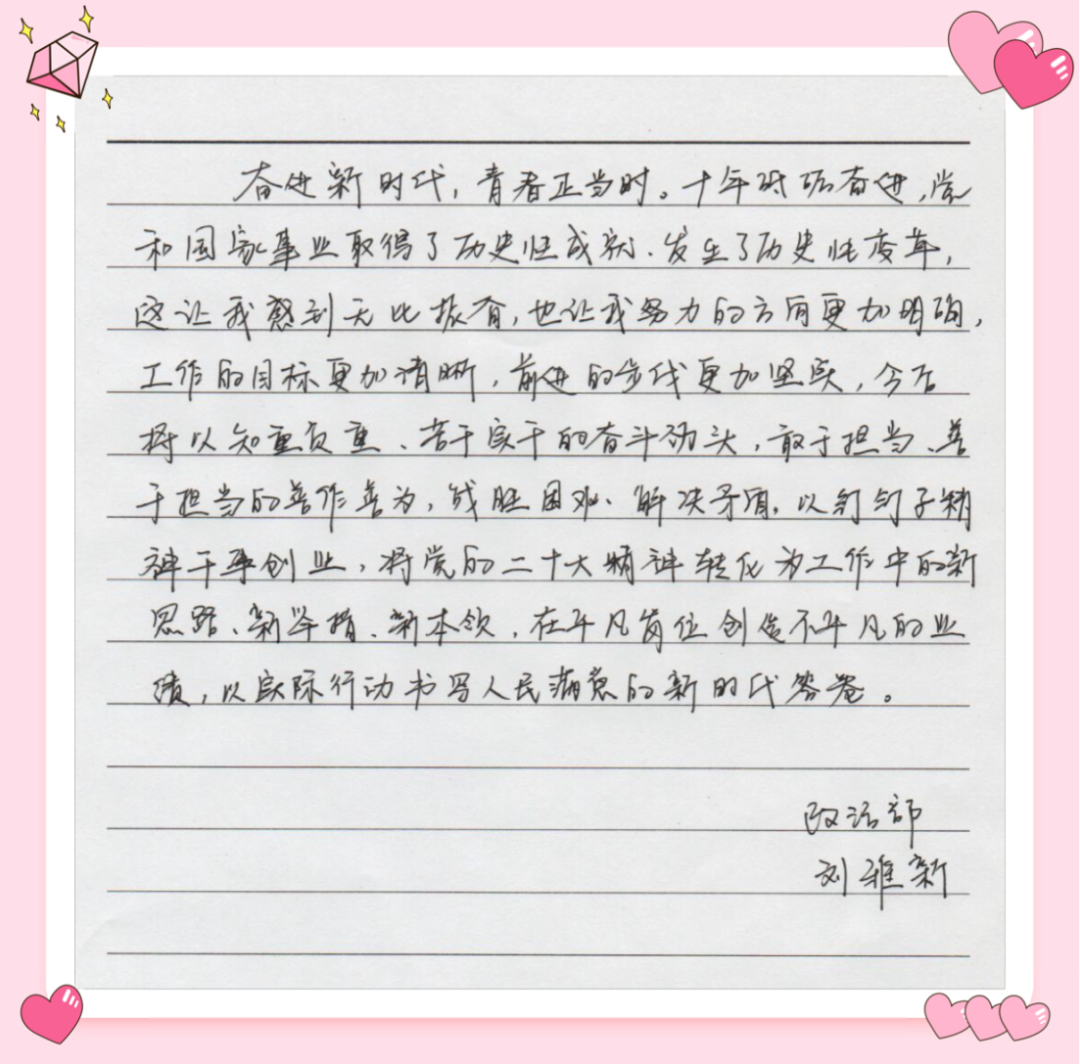 奋进新时代，青春正当时。十年砥砺奋进，党
和国家事业取得了历史性成就、发生了历史性变革，
这让我感到无比振奋，也让我努力的方向更加明确，
工作的目标更加清晰，前进的步伐更加坚实，今后
将以知重负重、苦干实干的奋斗劲头，敢于担当、善
于担当的善作善为，战胜困难、解决矛盾，以钉钉子精
神干事创业，将党的二十大精神转化为工作中的新
思路、新举措、新本领，在平凡岗位创造不平凡的业
绩，以实际行动书写人民满意的新时代答卷。
政治部
刘雅新